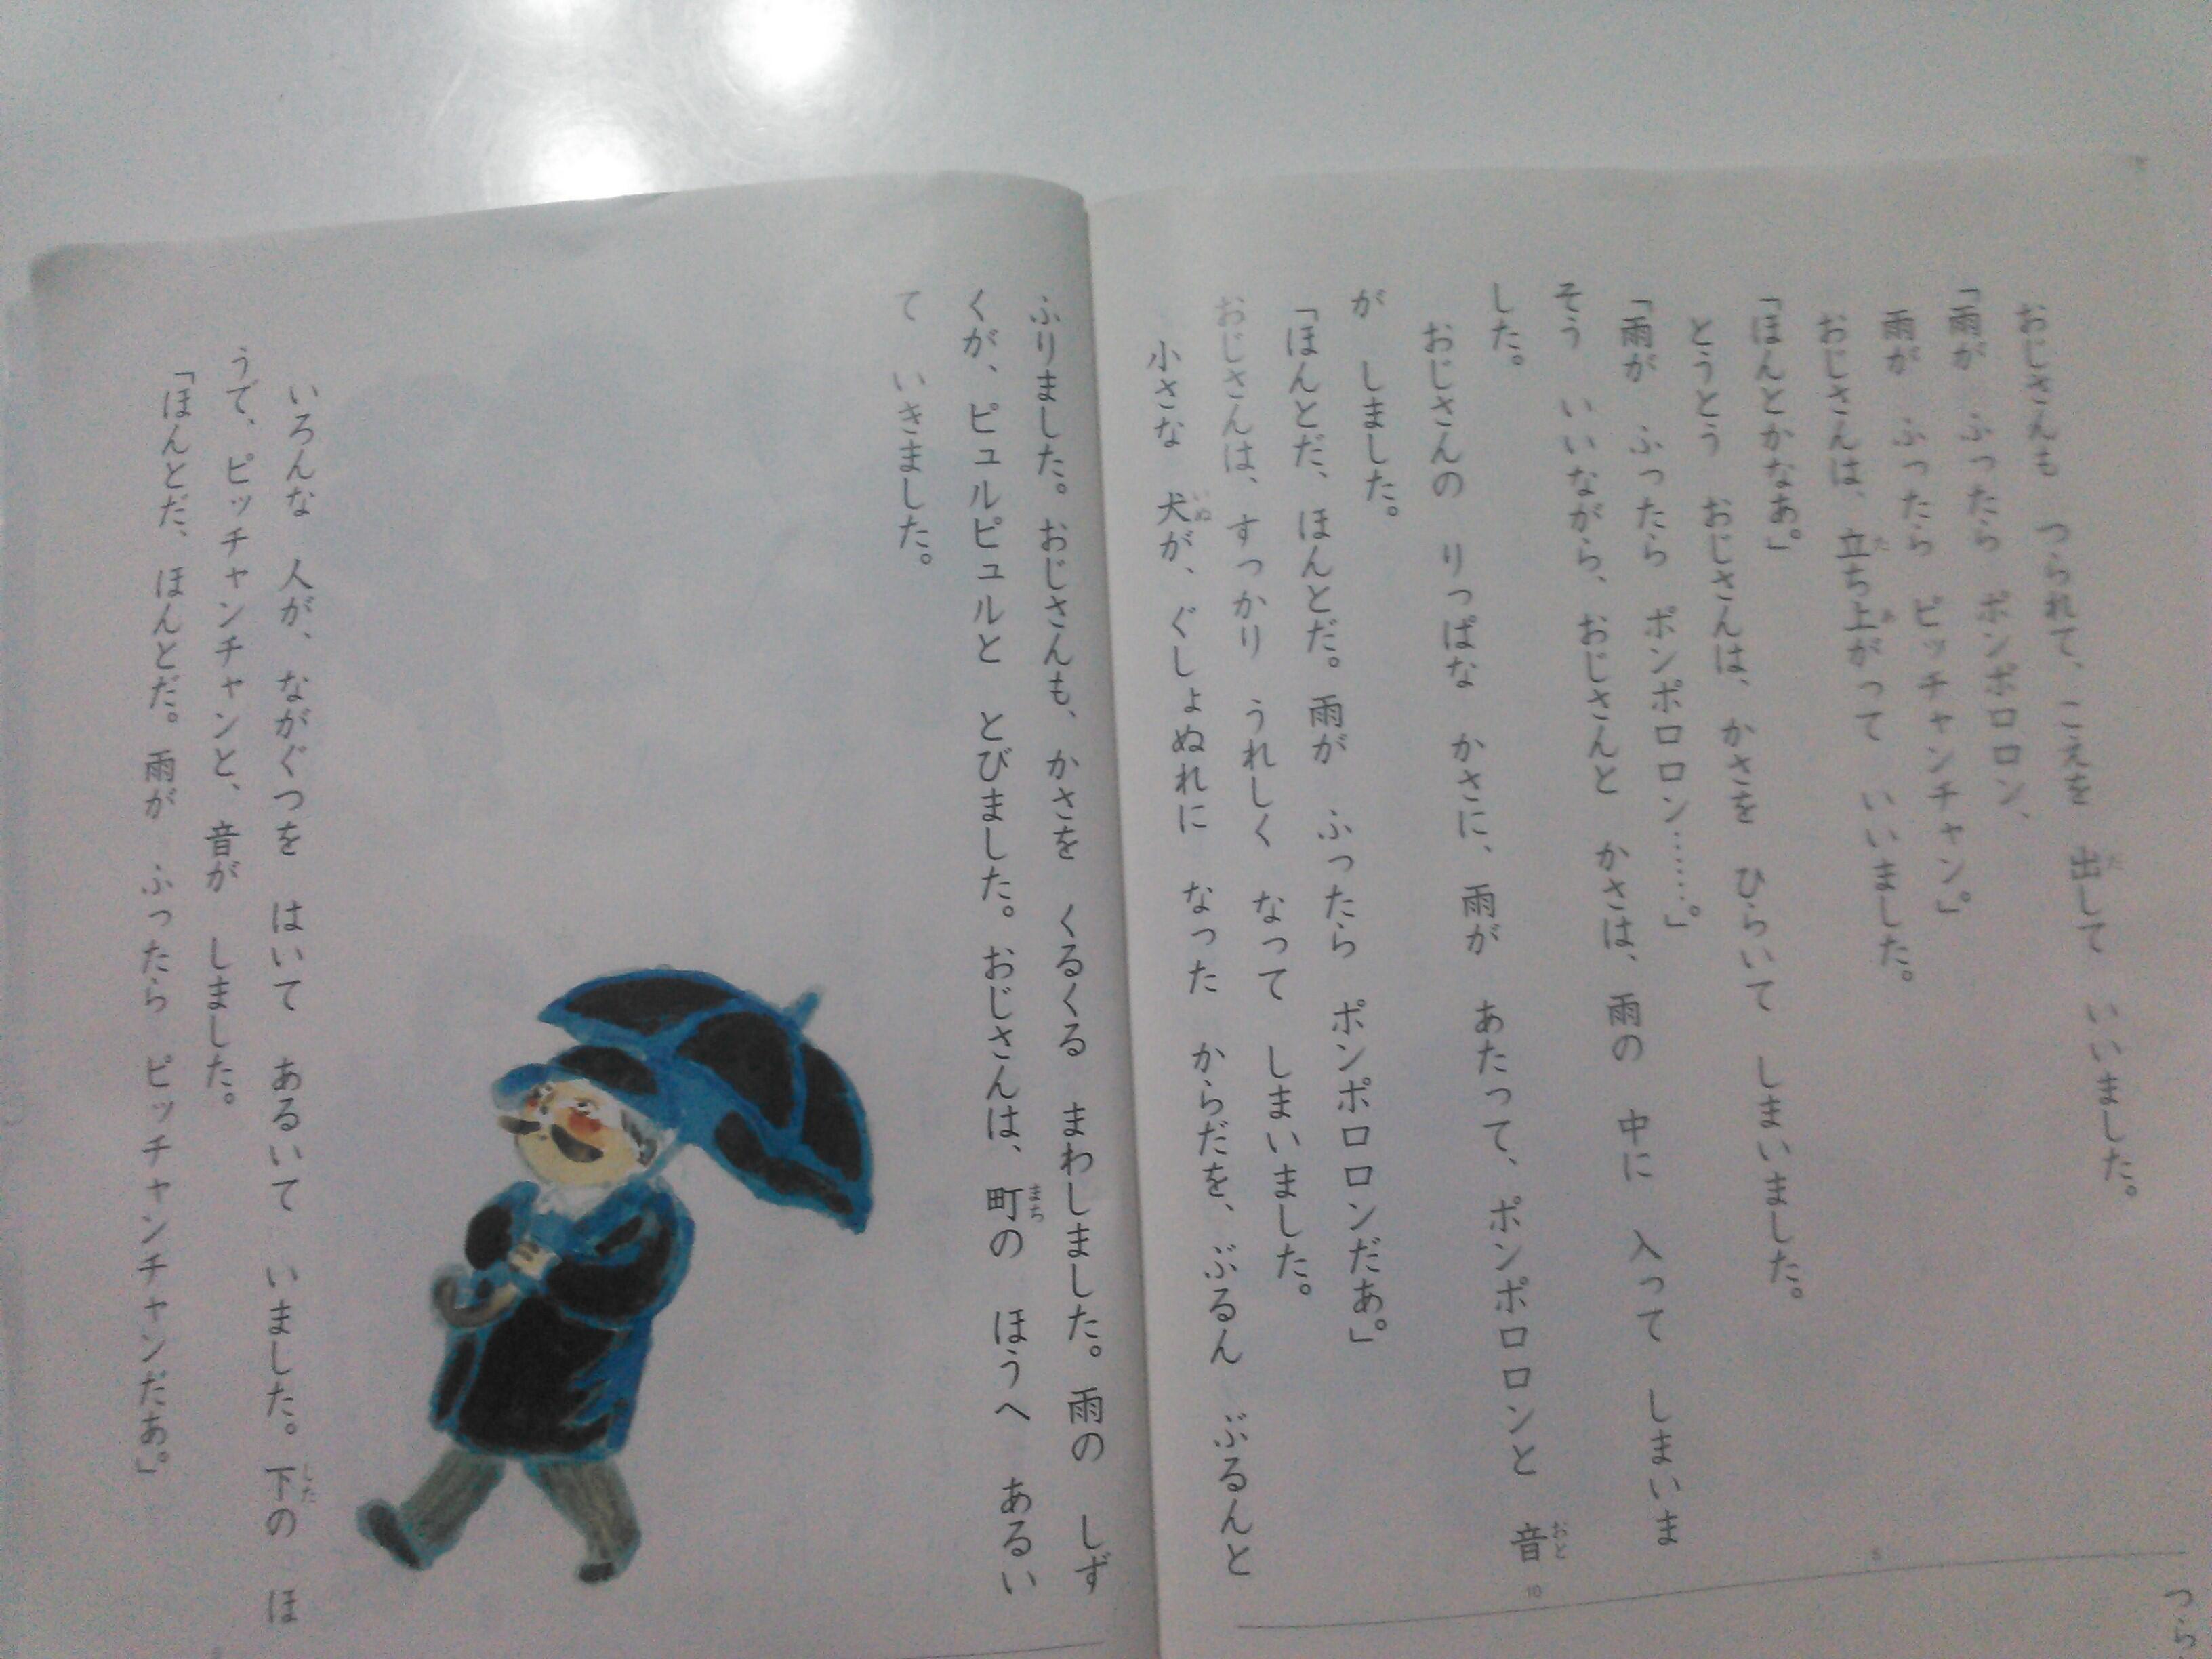 おじさんも つられて、こえを 出して いいました。
「雨が ふったら ポンポロロン、
雨が ふったら ピッチャンチャン。」
おじさんは、立ち上がって いいました。
「ほんとかなあ。」
とうとう おじさんは、かさを ひらいて しまいました。
「雨が ふったら ポンポロロン……。」
そう いいながら、おじさんと かさは、雨の 中に 入って しまいま
した。
おじさんの りっぱな かさに、雨が あたって、ポンポロロンと 音
が しました。
「ほんとだ、ほんとだ。雨が ふったら ポンポロロンだあ。」
おじさんは、すっかり うれしく なって しまいました。
小さな 犬が、ぐしょぬれに なった からだを、ぶるん ぶるんと
ふりました。おじさんも、かさを くるくる まわしました。雨の しず
くが、ピュルピュルと とびました。おじさんは、町の ほうへ あるい
て いきました。
いろんな 人が、ながぐつを はいて あるいて いました。下の ほ
うで、ピッチャンチャンと、音が しました。
「ほんとだ、ほんとだ。雨が ふったら ピッチャンチャンだあ。」
10
つら